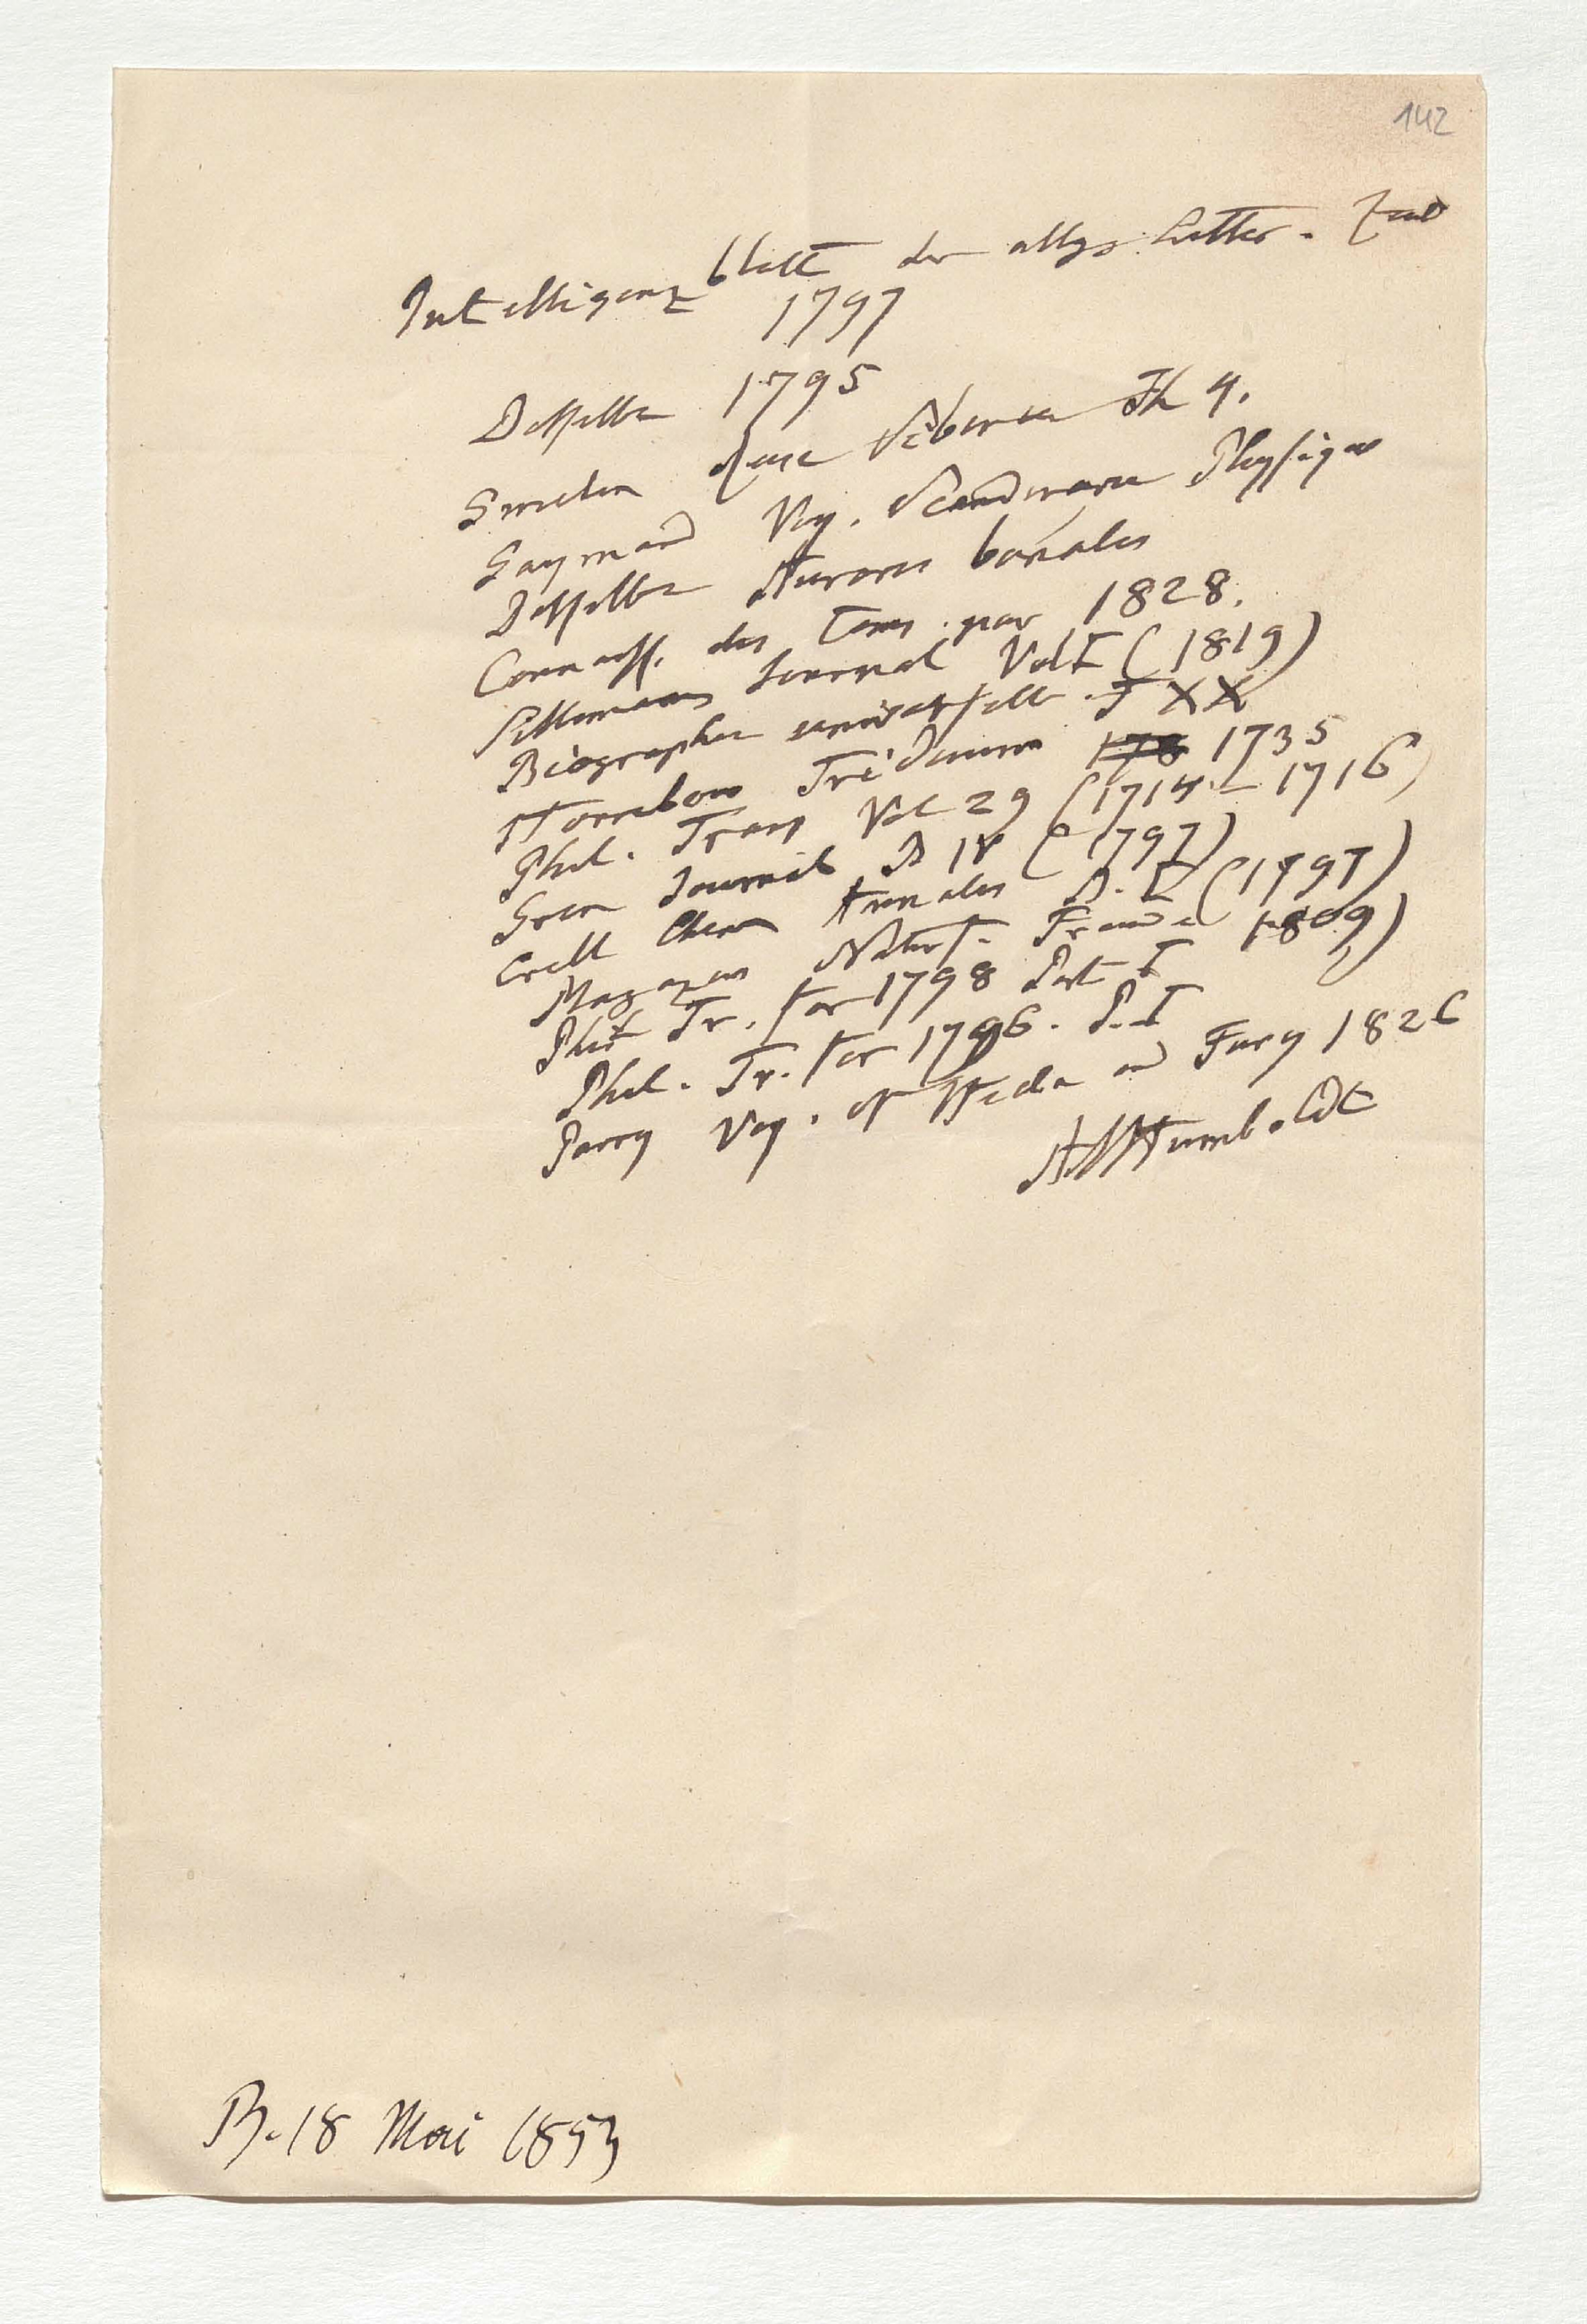 142
Intelligenzblatt der allg. Litter. Zeit
1797
Dasselbe 1795
Gmelin Reise Siberien Th 4.
Gaymard Voy. Scandinavie Physique
Dasselbe Aurores boréales
Connaiss. des Tems. pour 1828.
Sillimans Journal Vol I (1819)
Biographie universelle T XX
Horrebow Triduum 1735
Phil. Trans Vol 29 (1714 – 1716)
Gren Journal B IV (1797)
Crell Chem Annalen B. I (1797)
Magazin Naturf. Freunde 1809)
Phil Tr. for 1798 Part I
Phil. Tr. for 1796. P. I
Parry Voy. of Hecla and Fury 1826
AvHumboldt
B. 18 Mai 1853